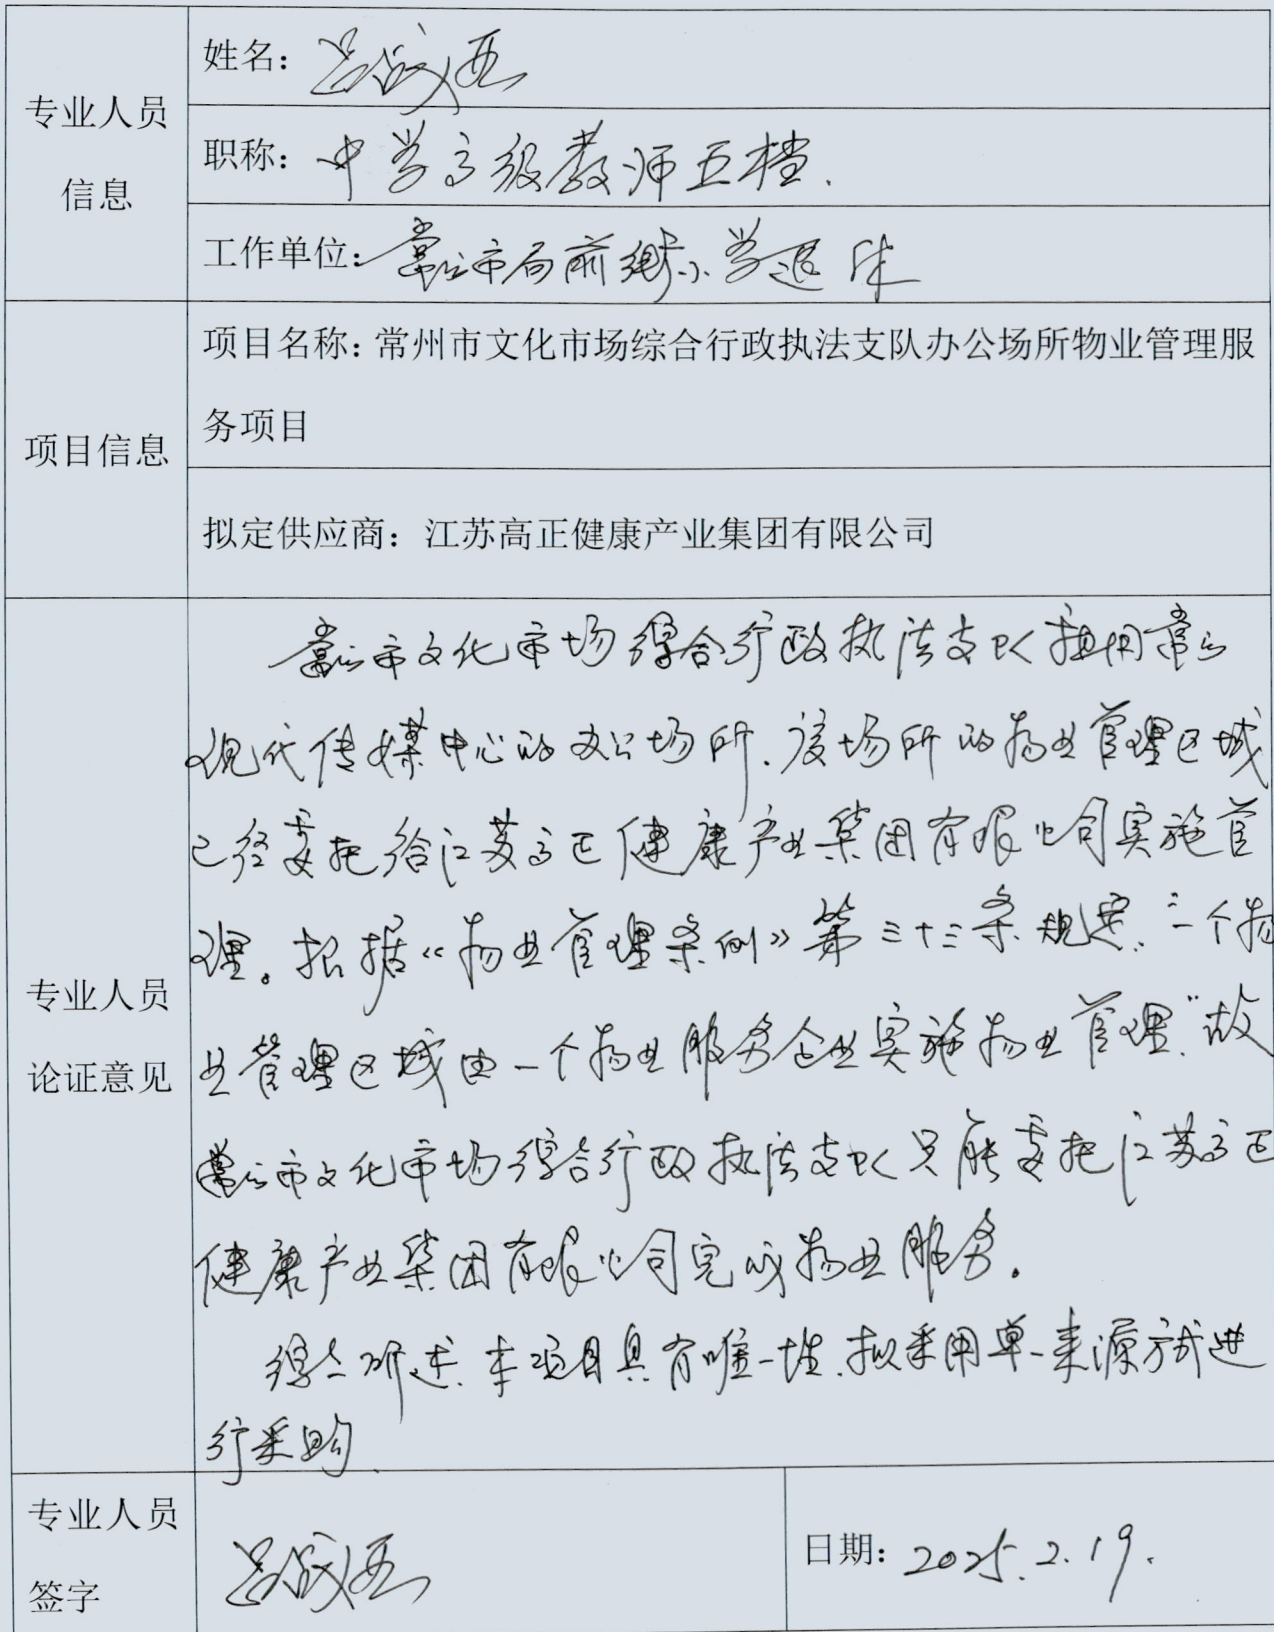 专业人员
信息
姓名：吕成亚
职称：中学高级教师五档.
工作单位：常州市局前街小学退休
项目信息
项目名称：常州市文化市场综合行政执法支队办公场所物业管理服
务项目
拟定供应商：江苏高正健康产业集团有限公司
专业人员
论证意见
常州市文化市场综合行政执法支队租用常州
现代传媒中心的办公场所.该场所的物业管理区域
已经委托给江苏高正健康产业集团有限公司实施管
理。根据《物业管理条例》第三十三条规定:"一个物
业管理区域由一个物业服务企业实施物业管理".故
常州市文化市场综合行政执法支队只能委托江苏高正
健康产业集团有限公司完成物业服务。
综上所述.本项目具有唯一性.拟采用单一来源方式进
行采购.
专业人员
签字
吕成亚
日期：2025.2.19.